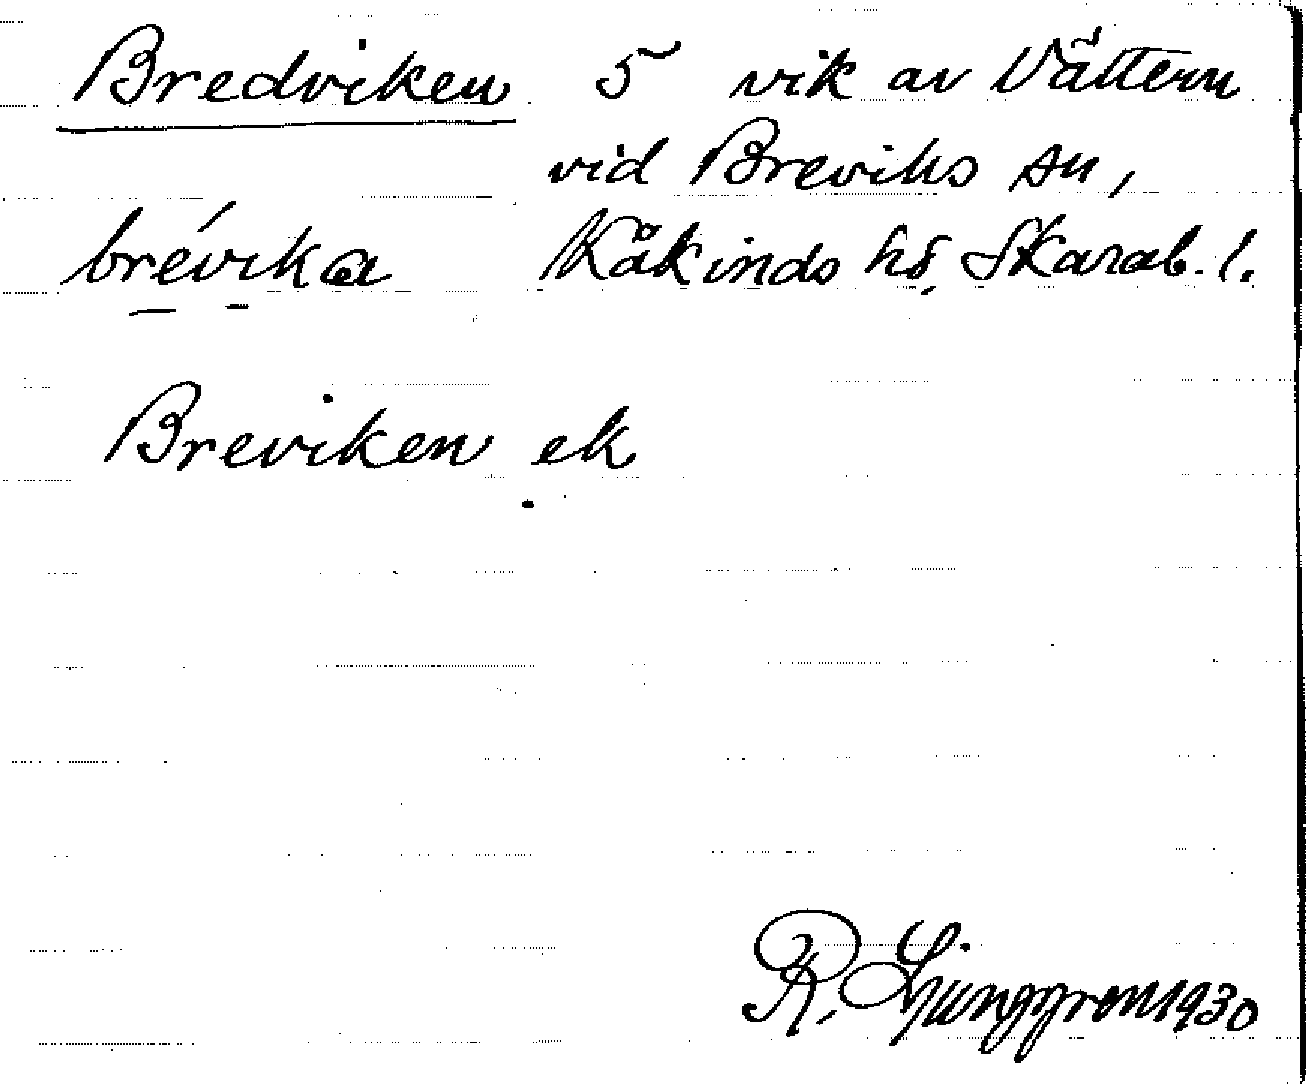 Bredviken 5 vik av Vättern
vid Breviks sn,
brévika Kåkinds hd, Skarab. l.
Breviken ek
R. Ljunggren 1930